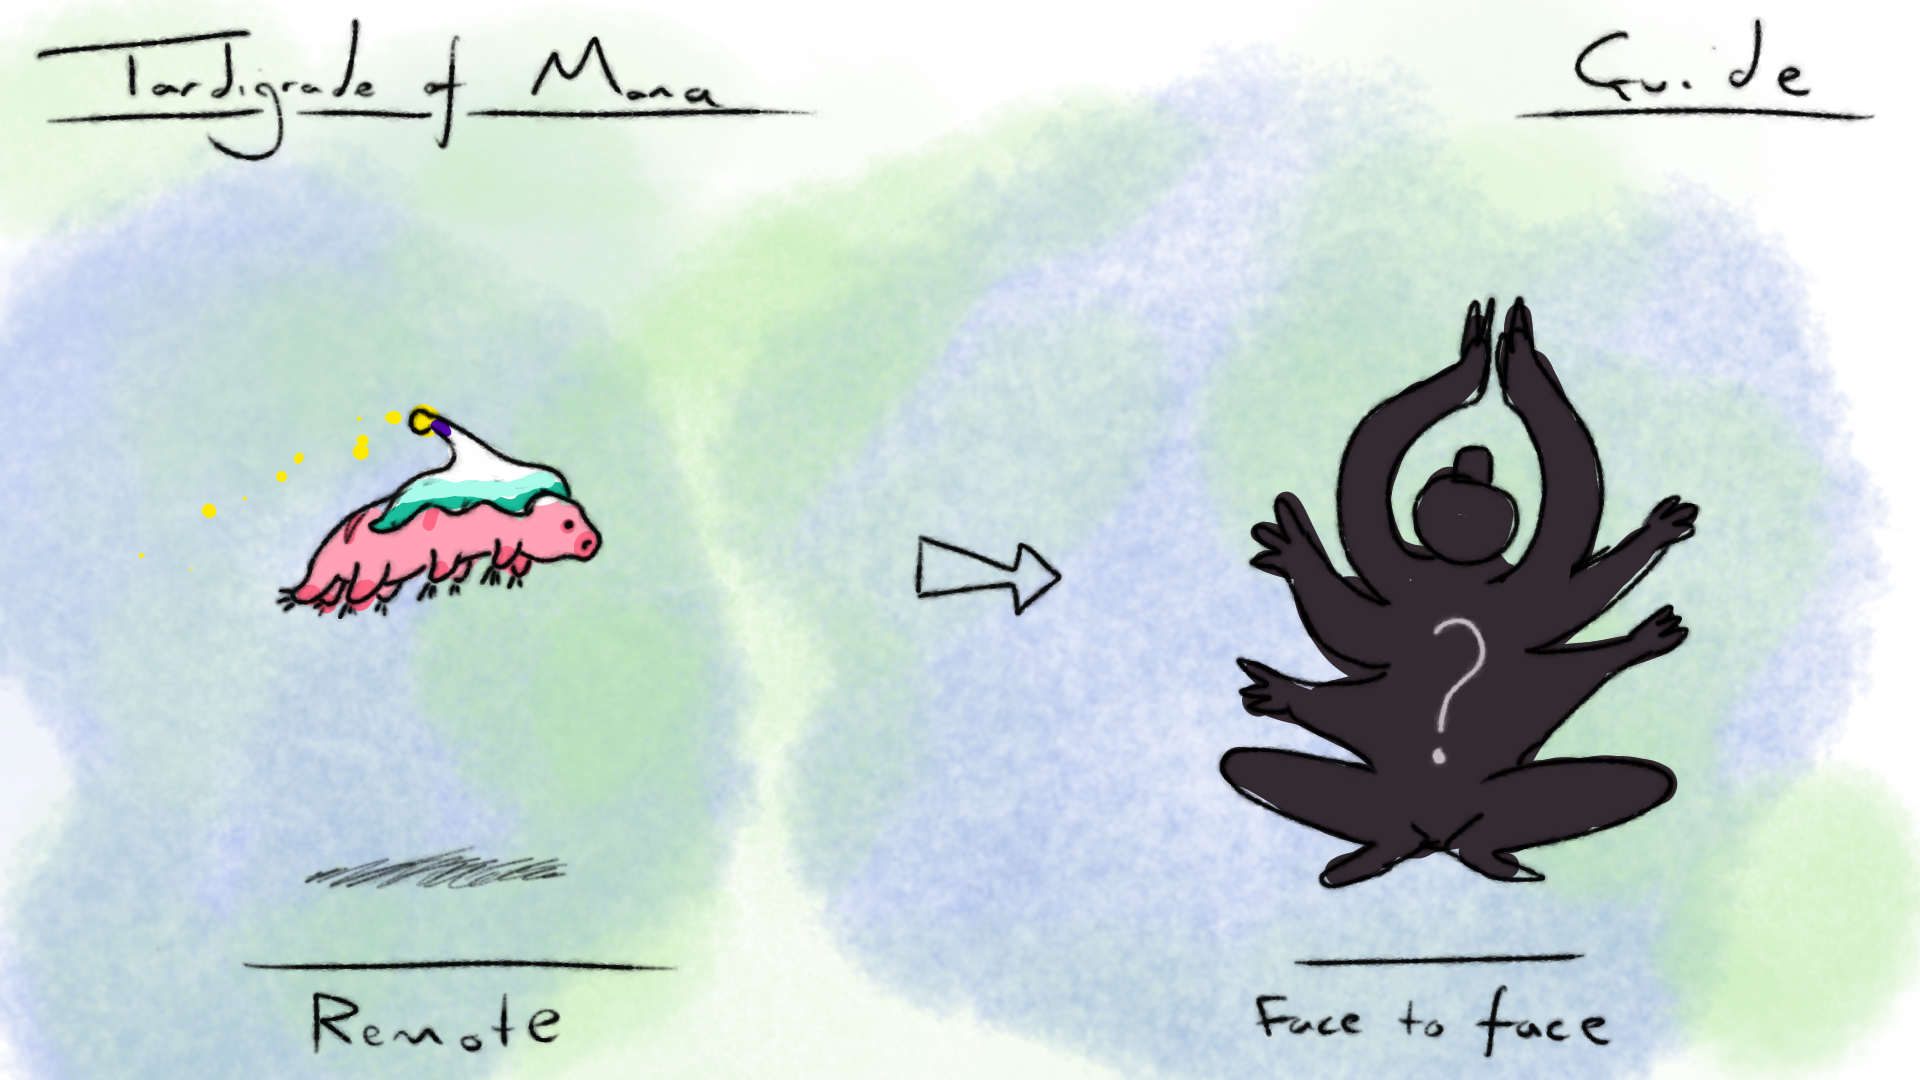 Tardigrade of Mana
Guide
?
Remote
Face to face